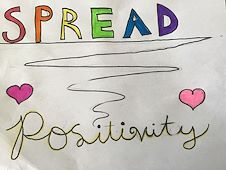 SPREAD
Positivity